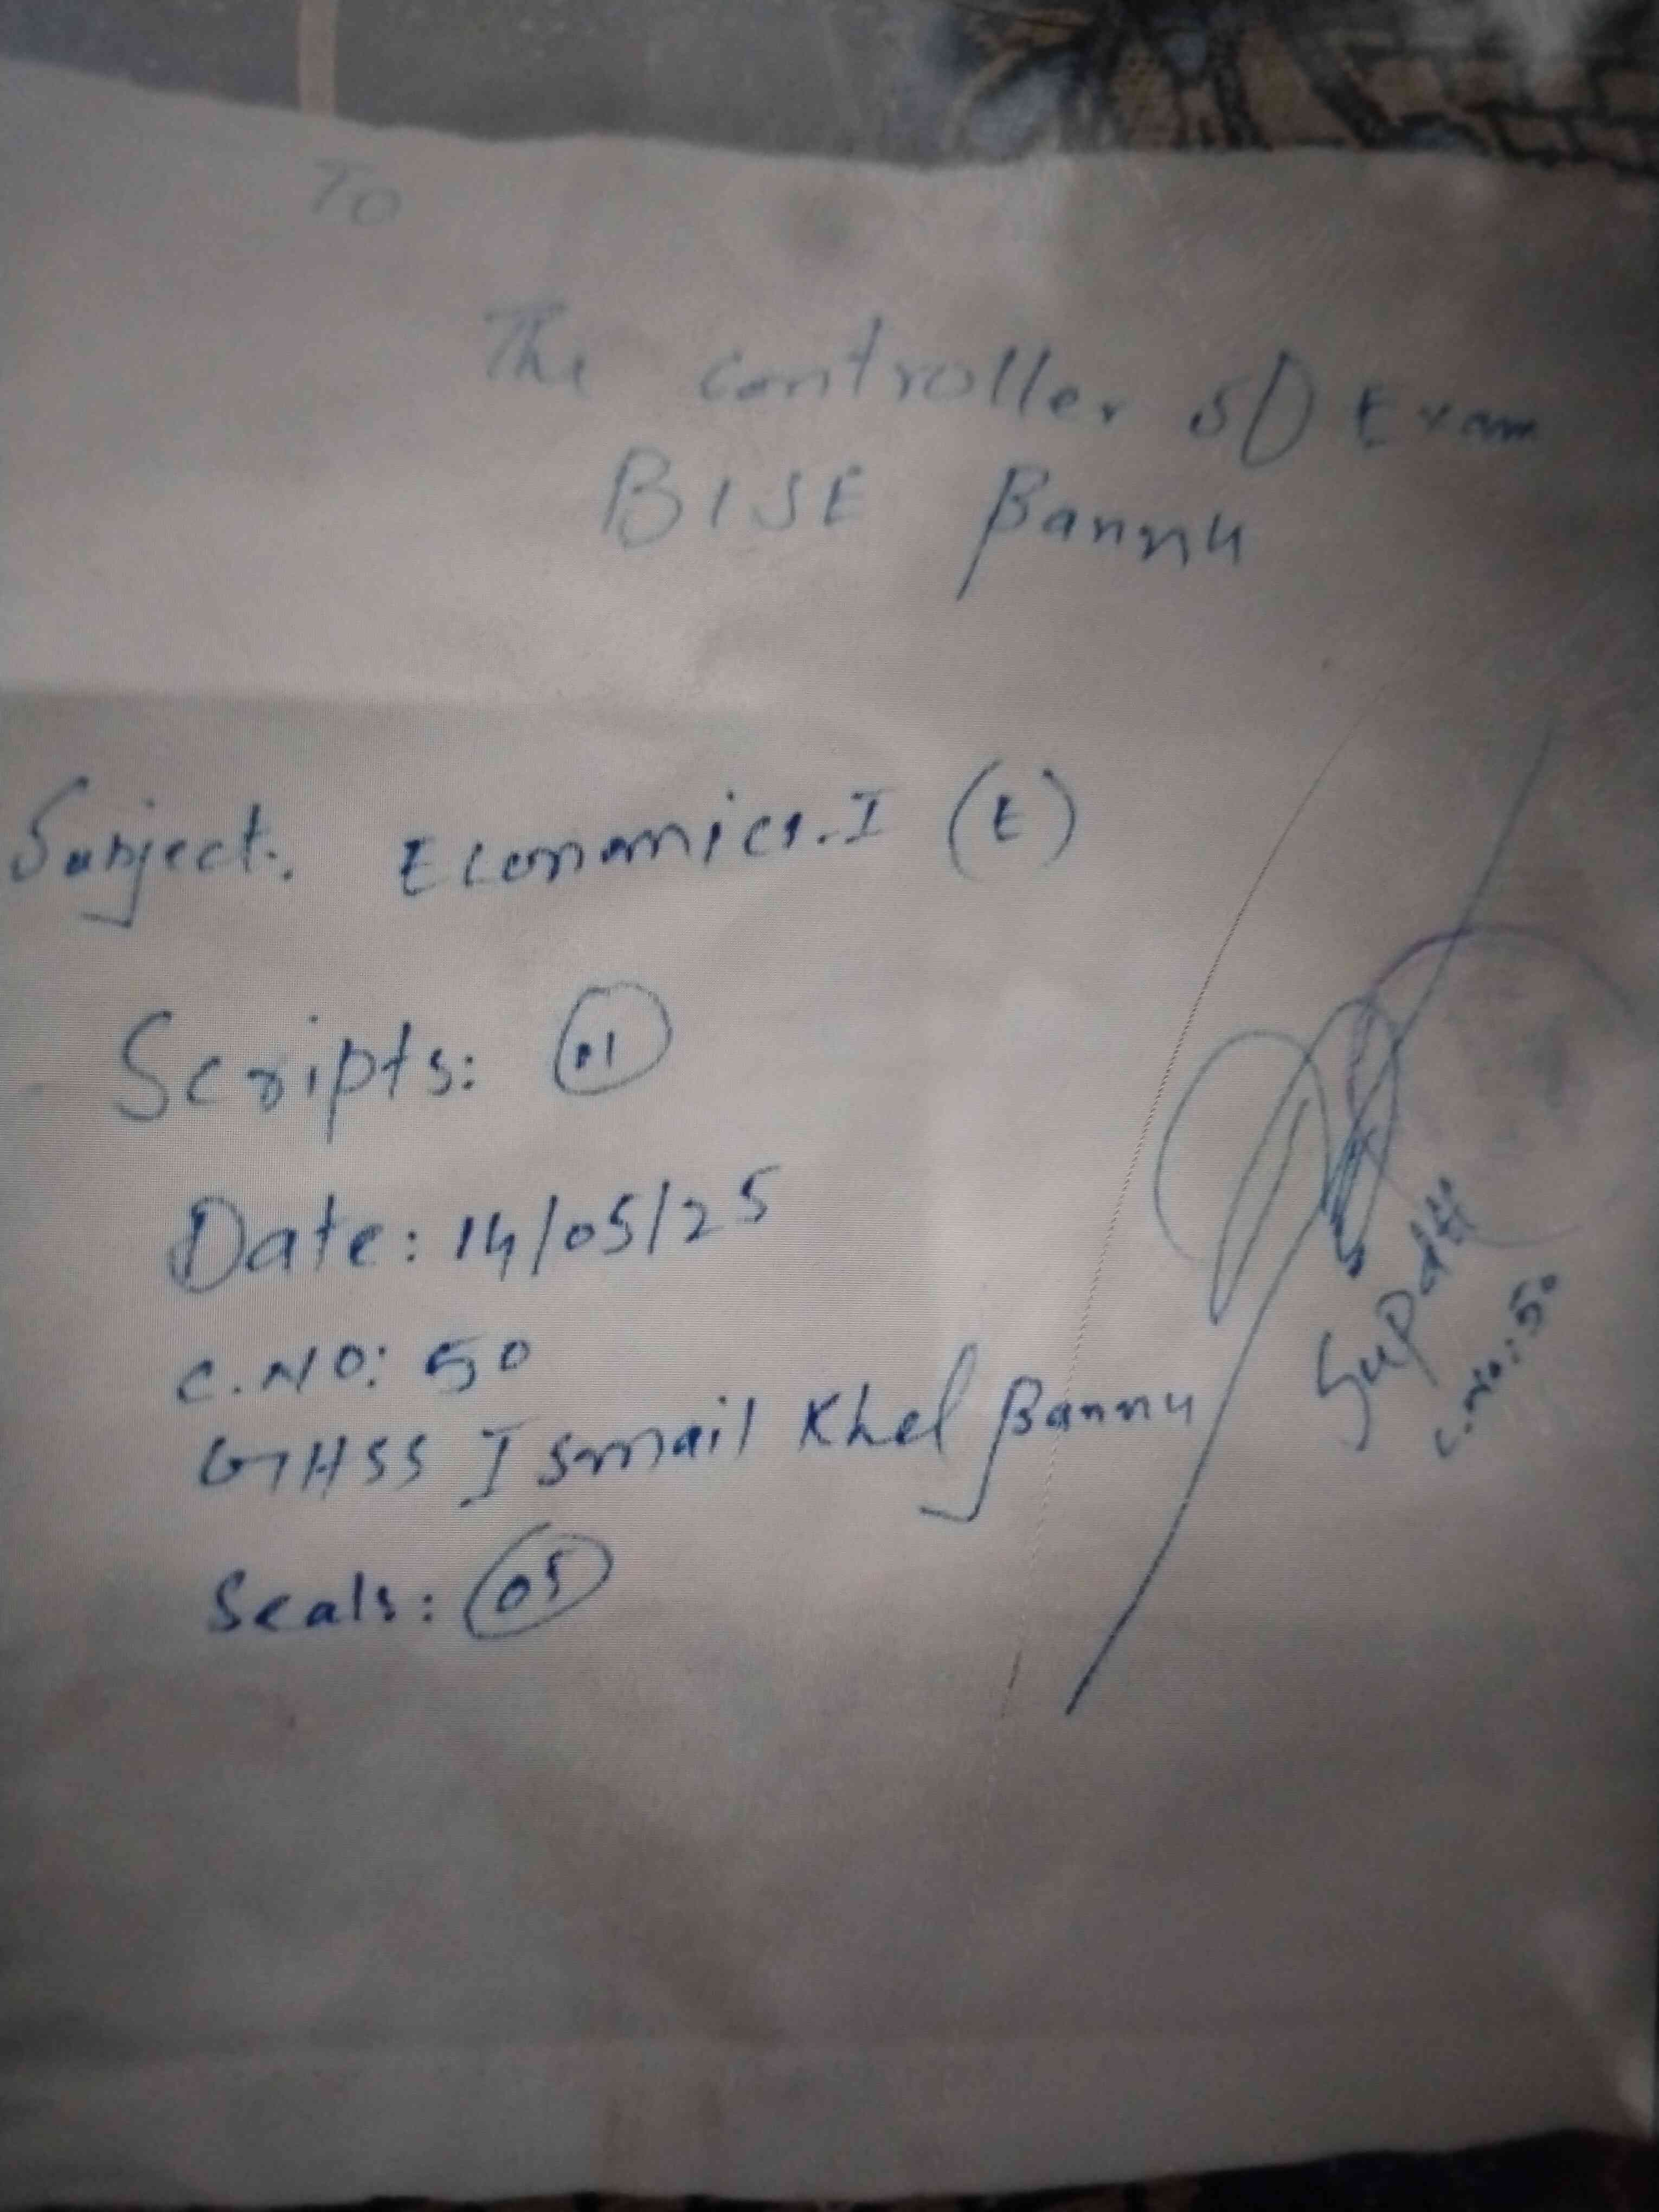 To
The controller of Exam
BISE Bannu
Subject. Economics.I (E)
Scripts: 01
Date: 14/05/25
C.NO: 50
GHSS Ismail Khel Bannu
Seals: 05
Supdtt
C.No: 50